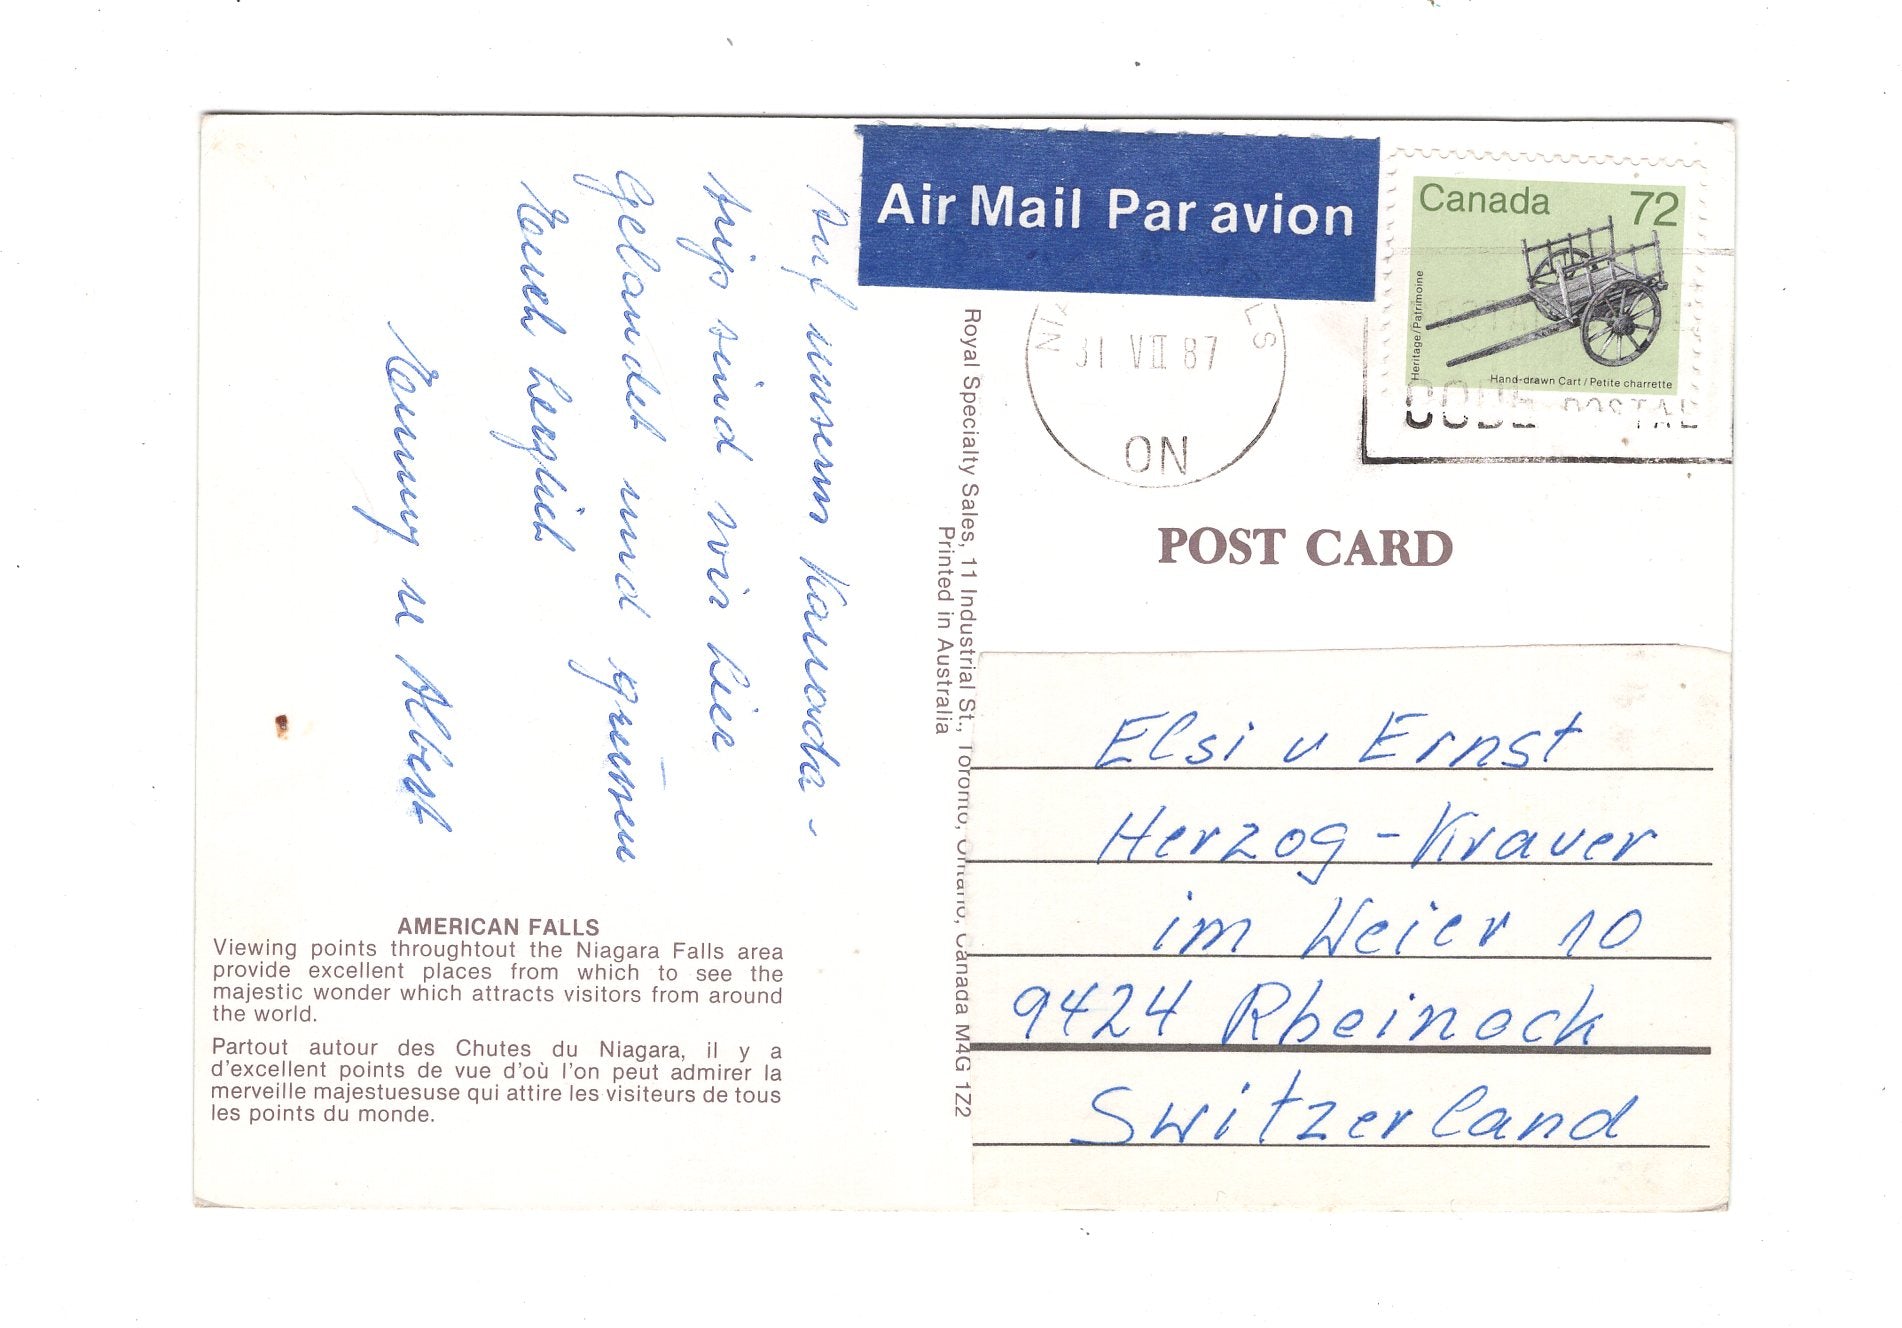 Auf unserm Kanada-
trip sind wir hier
gelandet und grüssen
Euch herzlich
Emmy u Albert
AMERICAN FALLS
Viewing points throughtout the Niagara Falls area
provide excellent places from which to see the
majestic wonder which attracts visitors from around
the world.
Partout autour des Chutes du Niagara, il y a
d'excellent points de vue d'où l'on peut admirer la
merveille majestuesuse qui attire les visiteurs de tous
les points du monde.
Royal Specialty Sales, 11 Industrial St., Toronto, Ontario, Canada M4G 1Z2
Printed in Australia
Air Mail Par avion
Canada 72
Heritage/Patrimoine
Hand-drawn Cart/Petite charrette
31 VII 87
ON
CODE POSTAL
POST CARD
Elsi u Ernst
Herzog-Krauer
im Weier 10
9424 Rheineck
Switzerland